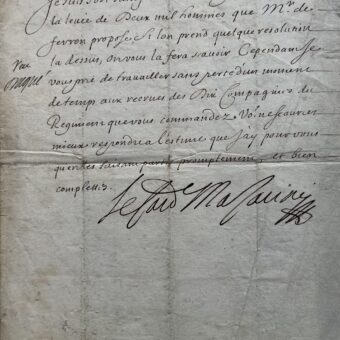 la levée de Deux mil hommes que Mr. de
ferron propose. Si l'on prend quelque resolution
la dessus, on vous la fera scavoir. Cependant Je
vous prie de travailler sans perte d'un moment
de temps, aux recrues des Dix Compagnies du
Regiment que vous commandez. Vo9 ne scauriez
mieux respondre a l'estime que J'ay pour vous
qu'en les faisant partir promptement, et bien
complettes.
Le Card. Mazarini